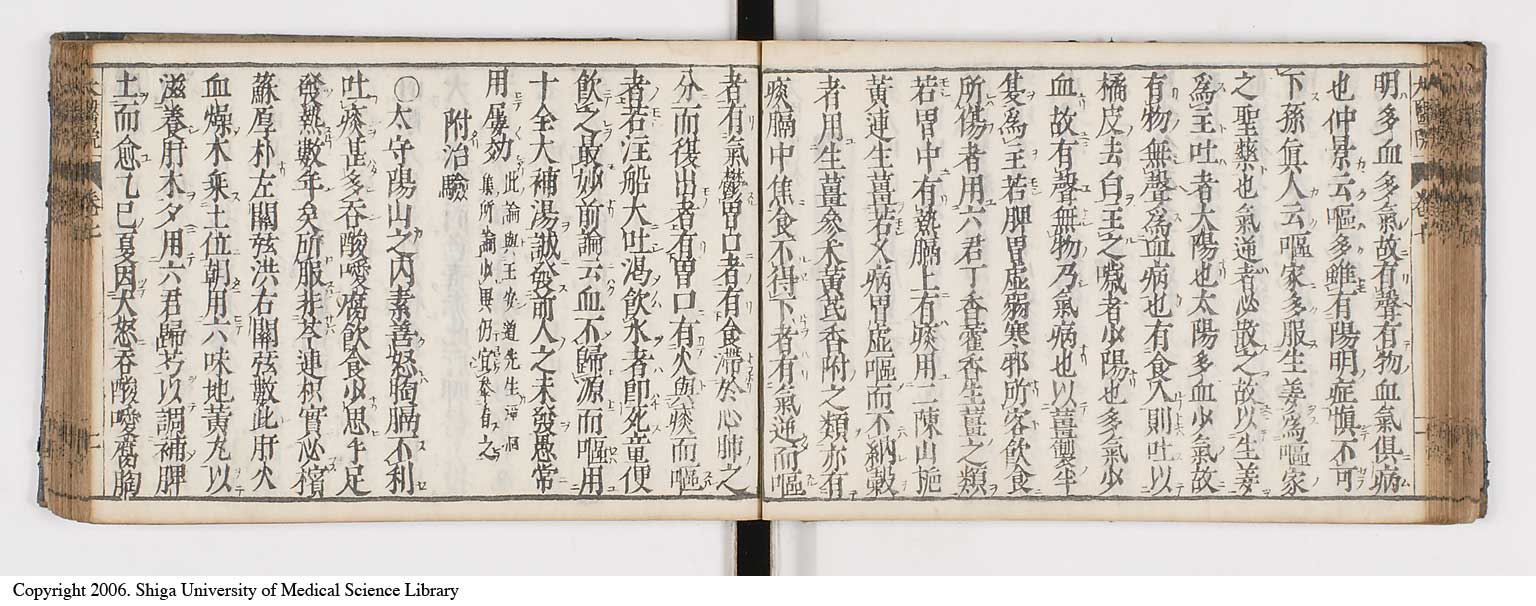 明多血多氣故有聲有物血氣俱病
也仲景云嘔多雖有陽明症愼不可
下孫眞人云嘔家多服生姜爲嘔家
之聖藥也氣逆者必散之故以生姜
爲王吐者太陽也太陽多血少氣故
有物無聲爲血病也有食入則吐以
橘皮去白王之噦者少陽也多氣少
血故有聲無物乃氣病也以薑製半
夏爲王若脾胃虛弱寒邪所客飲食
所傷者用六君丁香藿香生薑之類
若胃中有熱膈上有痰用二陳山梔
黃連生薑若久病胃虛嘔而不納穀
者用生薑參朮黃芪香附之類亦有
痰膈中焦食不得下者有氣逆而嘔
者有氣鬱胃口者有食滯於心肺之
分而復出者有胃口有火與痰而嘔
者若注船大吐渴飲水者即死童便
飲之最妙前論云血不歸源而嘔用
十全大補湯誠發前人之未發愚常
用屢効 此論與王少道先生深相集所論少異仍宜參看之
附治驗
○太守陽山之內素善怒胸膈不利
吐痰甚多吞酸噯腐飲食少思手足
發熱數年矣所服非芩連枳實必檳
蘇厚朴左關弦洪右關弦數此肝火
血燥木乘土位朝用六味地黃丸以
滋養肝木夕用六君歸芍以調補脾
土而愈乙巳夏因大怒吞酸噯腐胸